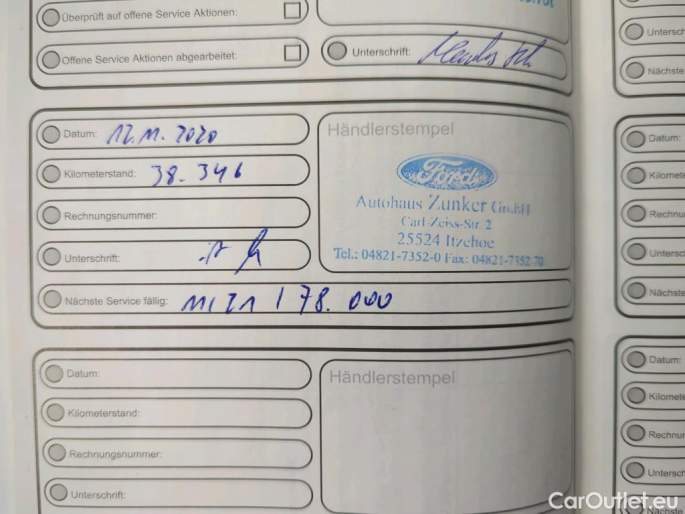 Überprüft auf offene Service Aktionen:
Offene Service Aktionen abgearbeitet:
Unterschrift:
Datum: 12.11.2020
Kilometerstand: 38.346
Rechnungsnummer:
Unterschrift:
Nächste Service fällig: 11/21 / 78.000
Händlerstempel
Ford
Autohaus Zunker GmbH
Carl-Zeiss-Str. 2
25524 Itzehoe
Tel.: 04821-7352-0 Fax: 04821-7352-70
Datum:
Kilometerstand:
Rechnungsnummer:
Unterschrift:
Händlerstempel
Datum:
Nächste
Datum:
CarOutlet.eu